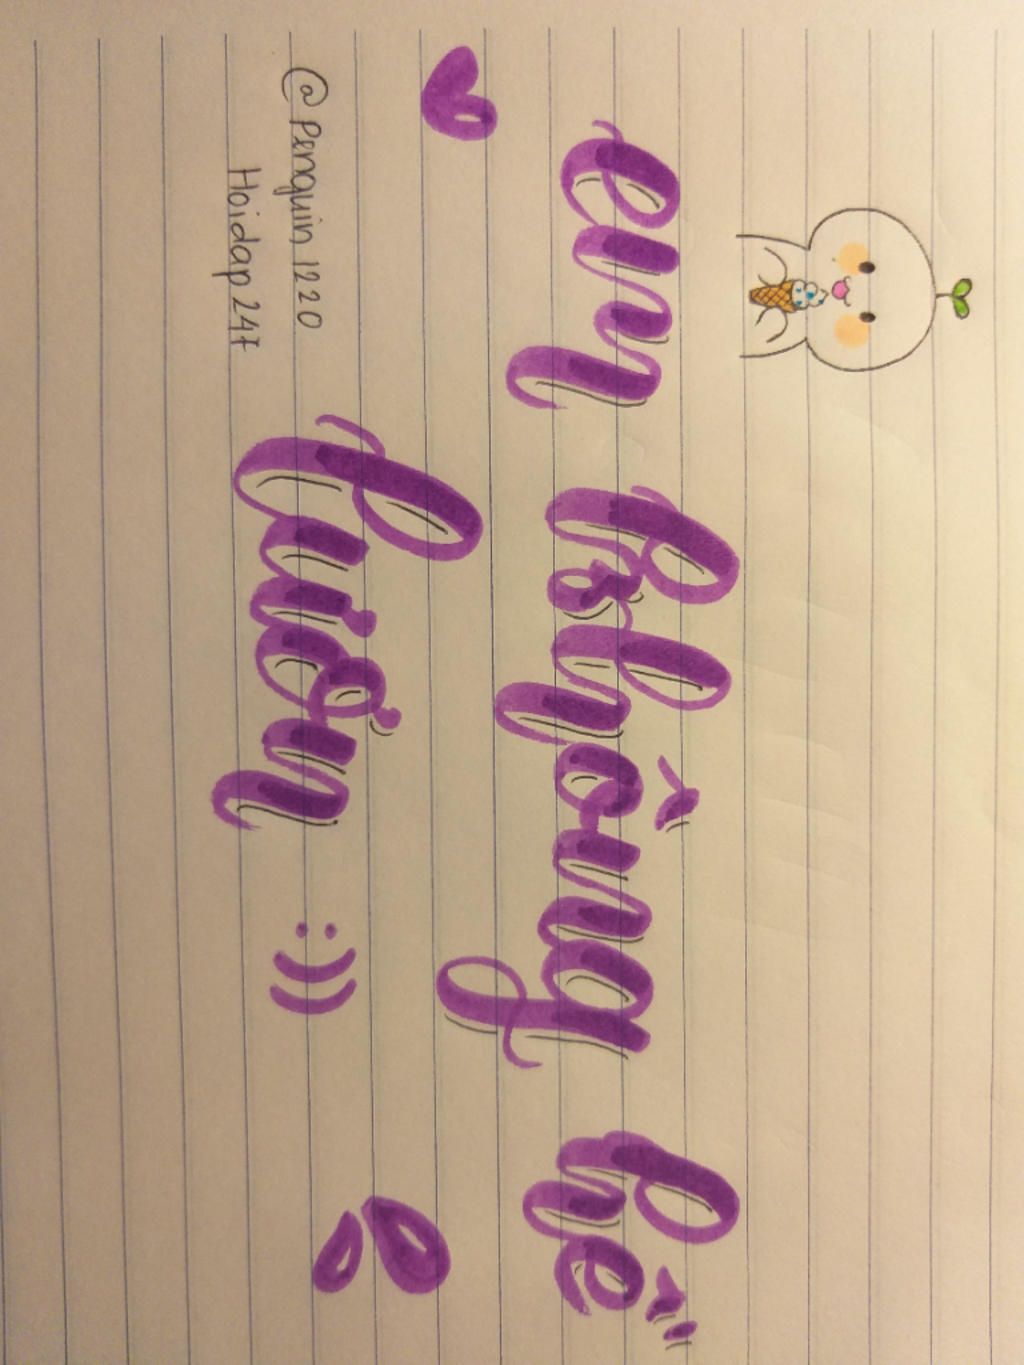 em không hề
lươn :))
@ Penquin 1220
Hoidap 247